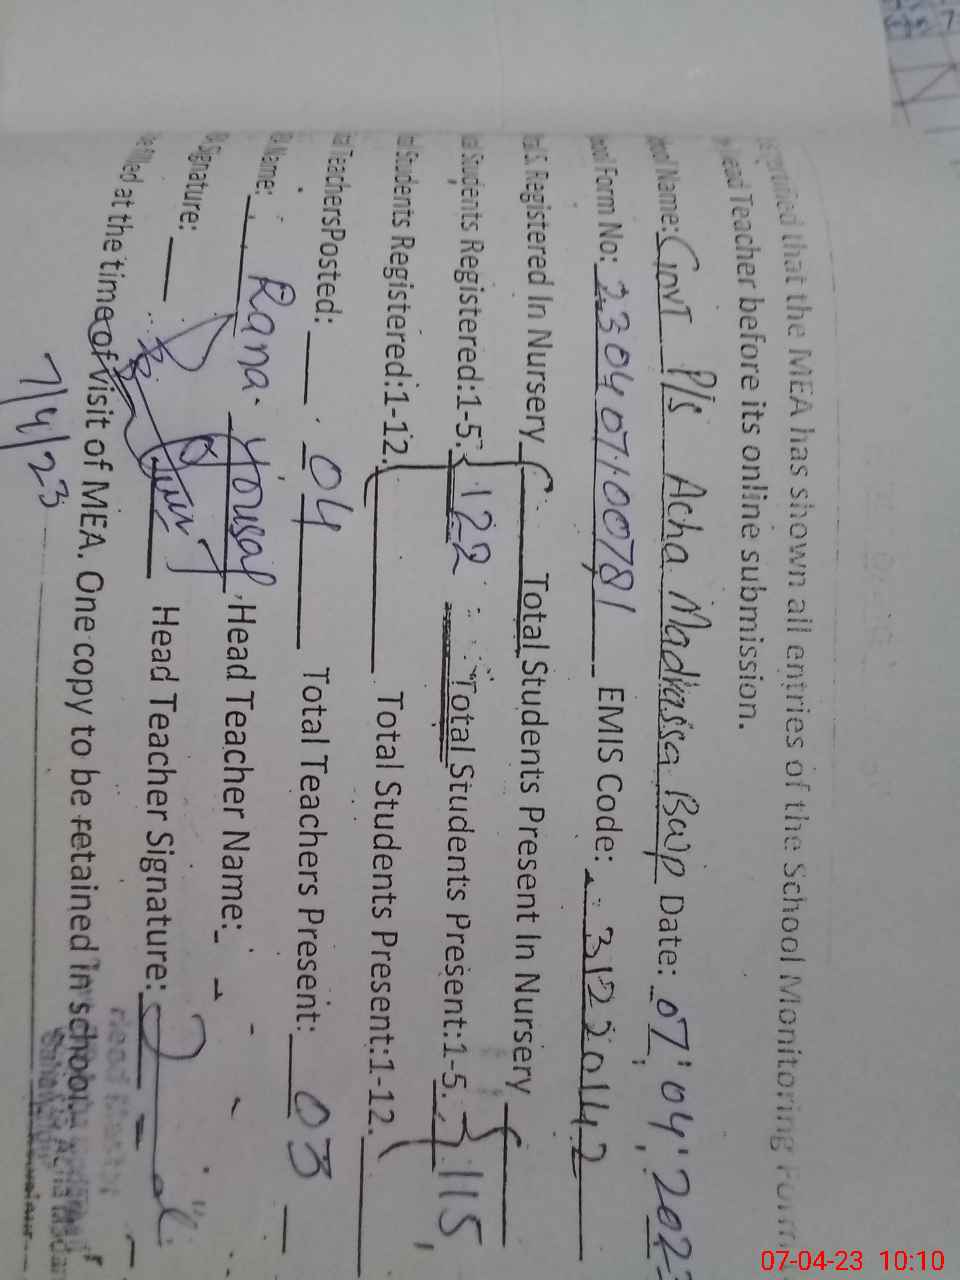 that the MEA has shown all entries of the School Monitoring Form
Head Teacher before its online submission.
Name: Govt P/s Acha Madrassa Bwp Date: 07.04.202
Form No: 2304071.00781 EMIS Code: 31220142
S. Registered In Nursery Total Students Present In Nursery
Students Registered:1-5. 122 Total Students Present:1-5. 115
Students Registered:1-12. Total Students Present:1-12.
TeachersPosted: 04 Total Teachers Present: 03
Name: Rana Yousaf, Head Teacher Name:
Signature: Head Teacher Signature:
filled at the time of visit of MEA. One copy to be retained in school
7/4/23
07-04-23 10:10